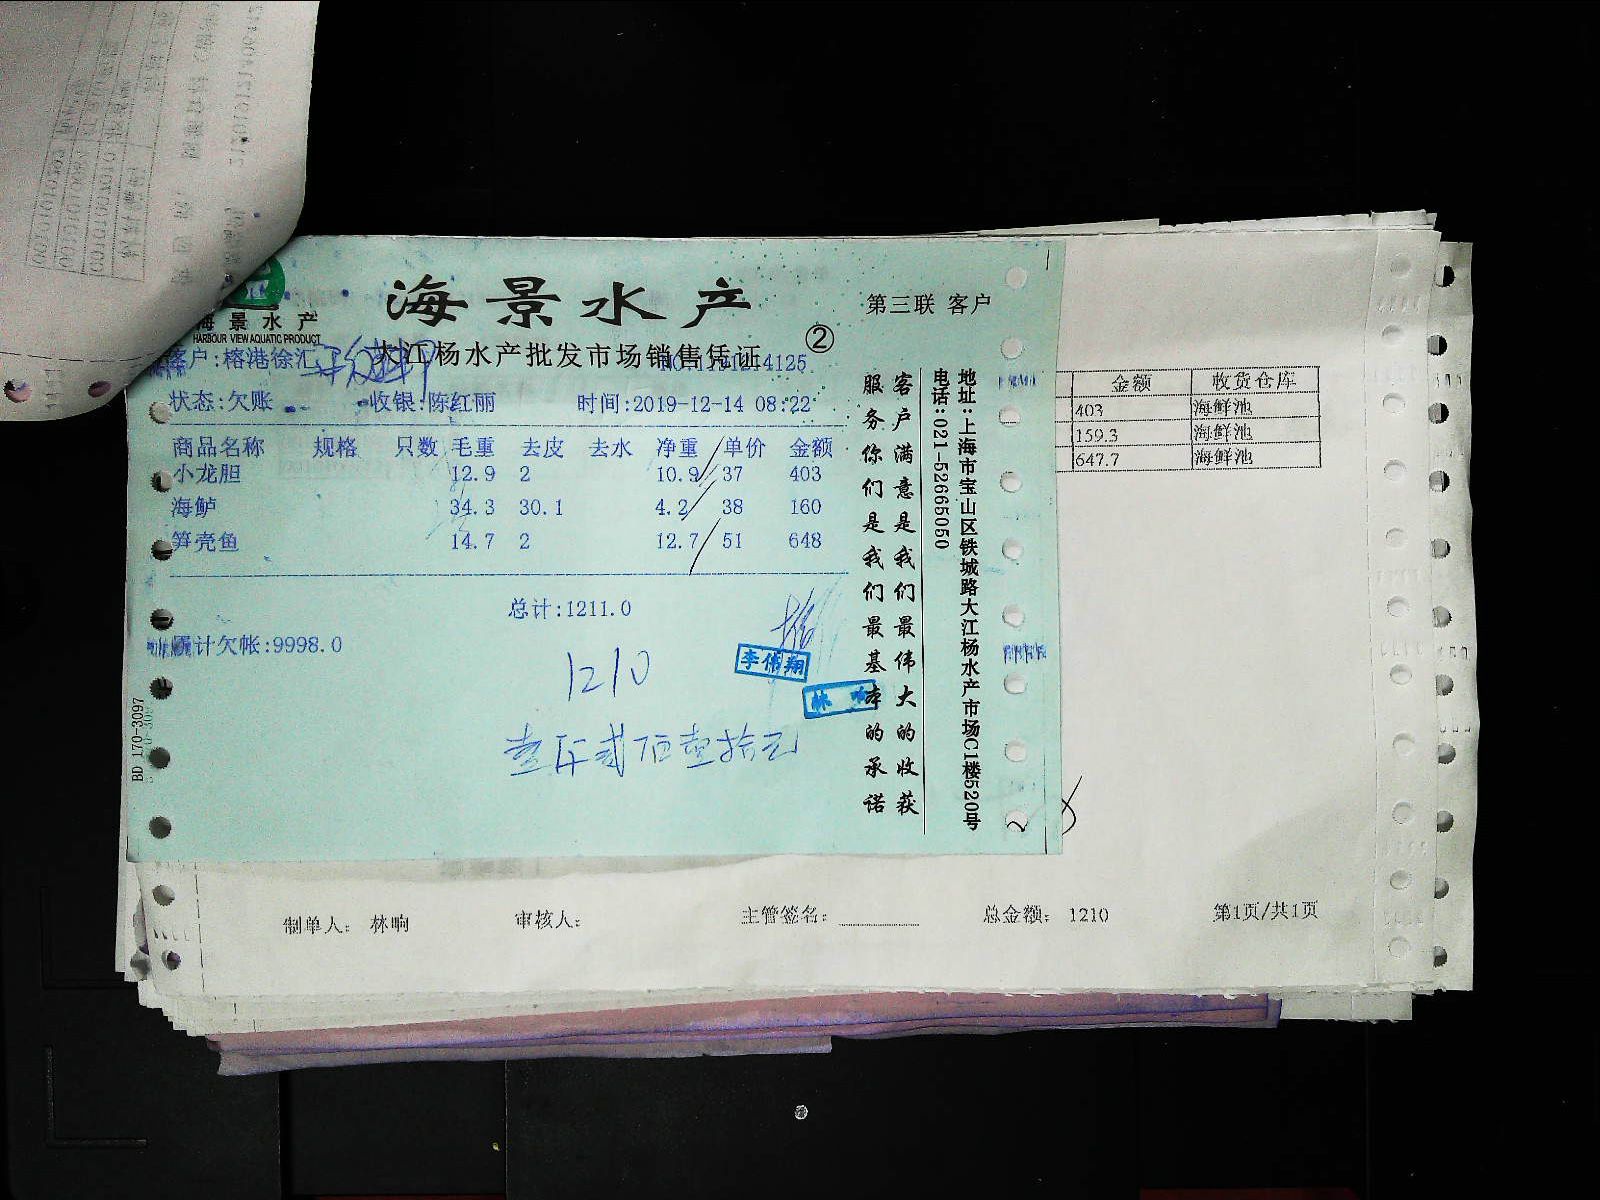 海景水产
第三联 客户
海景水产
HARBOUR VIEW AQUATIC PRODUCT
大江杨水产批发市场销售凭证
②
客户:榕港徐汇
NO:1191214125
状态:欠账 收银:陈红丽 时间:2019-12-14 08:22
商品名称 规格 只数 毛重 去皮 去水 净重 单价 金额
小龙胆 12.9 2 10.9 37 403
海鲈 34.3 30.1 4.2 38 160
笋壳鱼 14.7 2 12.7 51 648
总计:1211.0
累计欠帐:9998.0
1210
壹仟贰佰壹拾元
李伟翔
林响
BD 170-3097
客户满意是我们最伟大的收获
服务你们是我们最基本的承诺
地址:上海市宝山区铁城路大江杨水产市场C1楼520号
电话:021-52665050
金额 收货仓库
403 海鲜池
159.3 海鲜池
647.7 海鲜池
制单人: 林响 审核人: 主管签名: 总金额: 1210 第1页/共1页